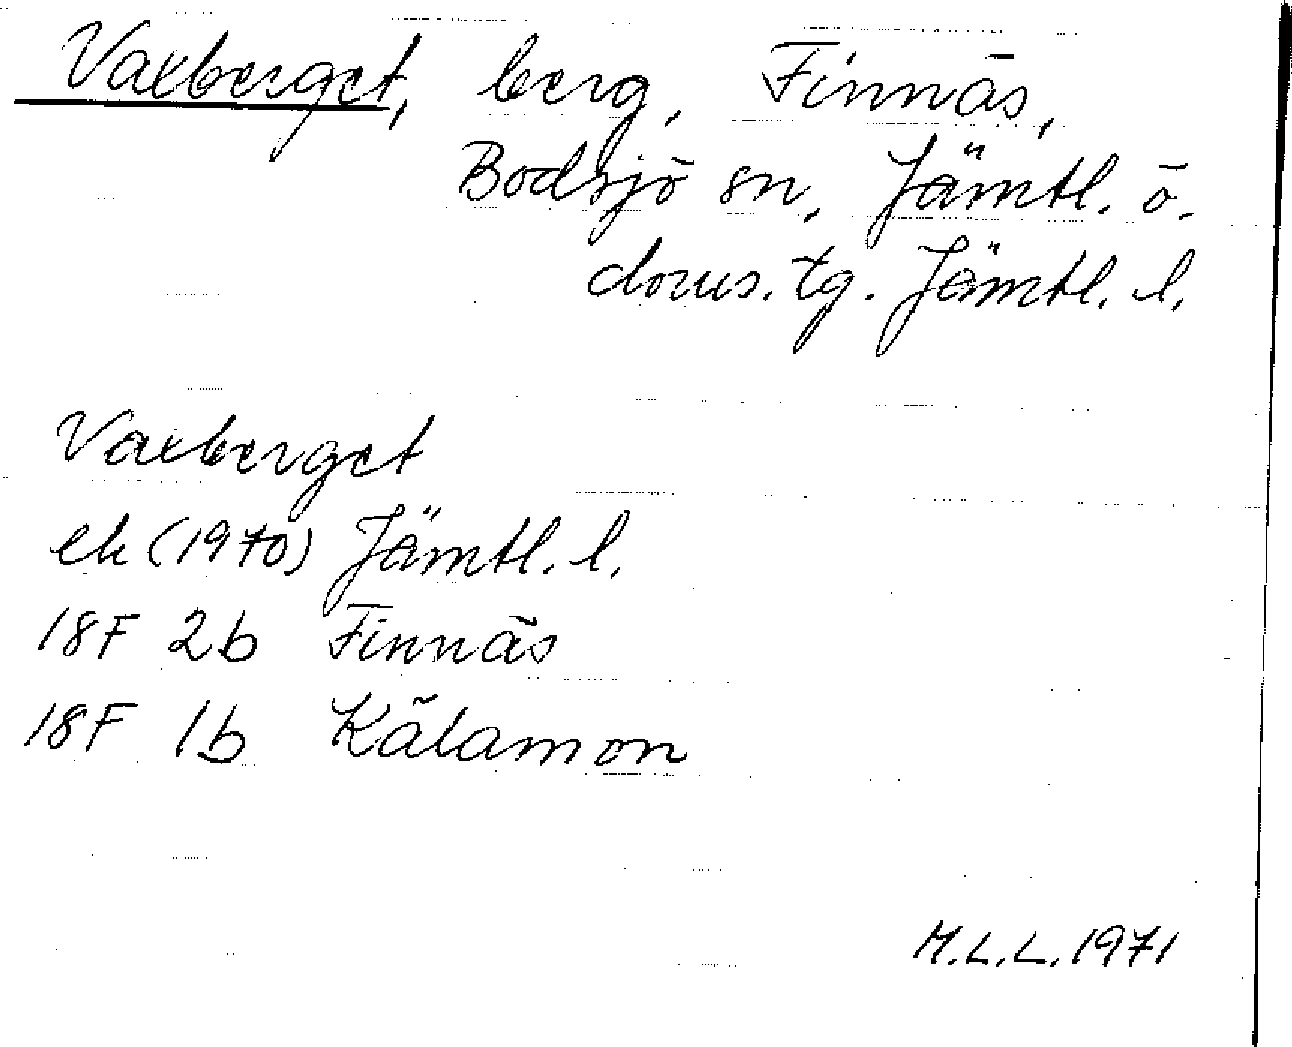 Vaxberget, berg, Finnäs,
Bodsjö sn, Jämtl. ö.
doms. tg. Jämtl. l.
Vaxberget
ek (1970) Jämtl. l.
18F 2b Finnäs
18F 1b Kälamon
M.L.L. 1971